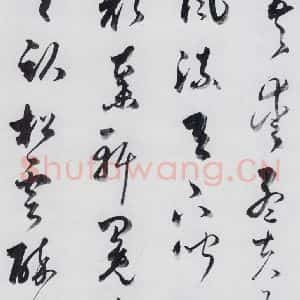 愛孟夫
風流天下聞
顏棄軒冕
臥松雲醉
Shufawang.CN